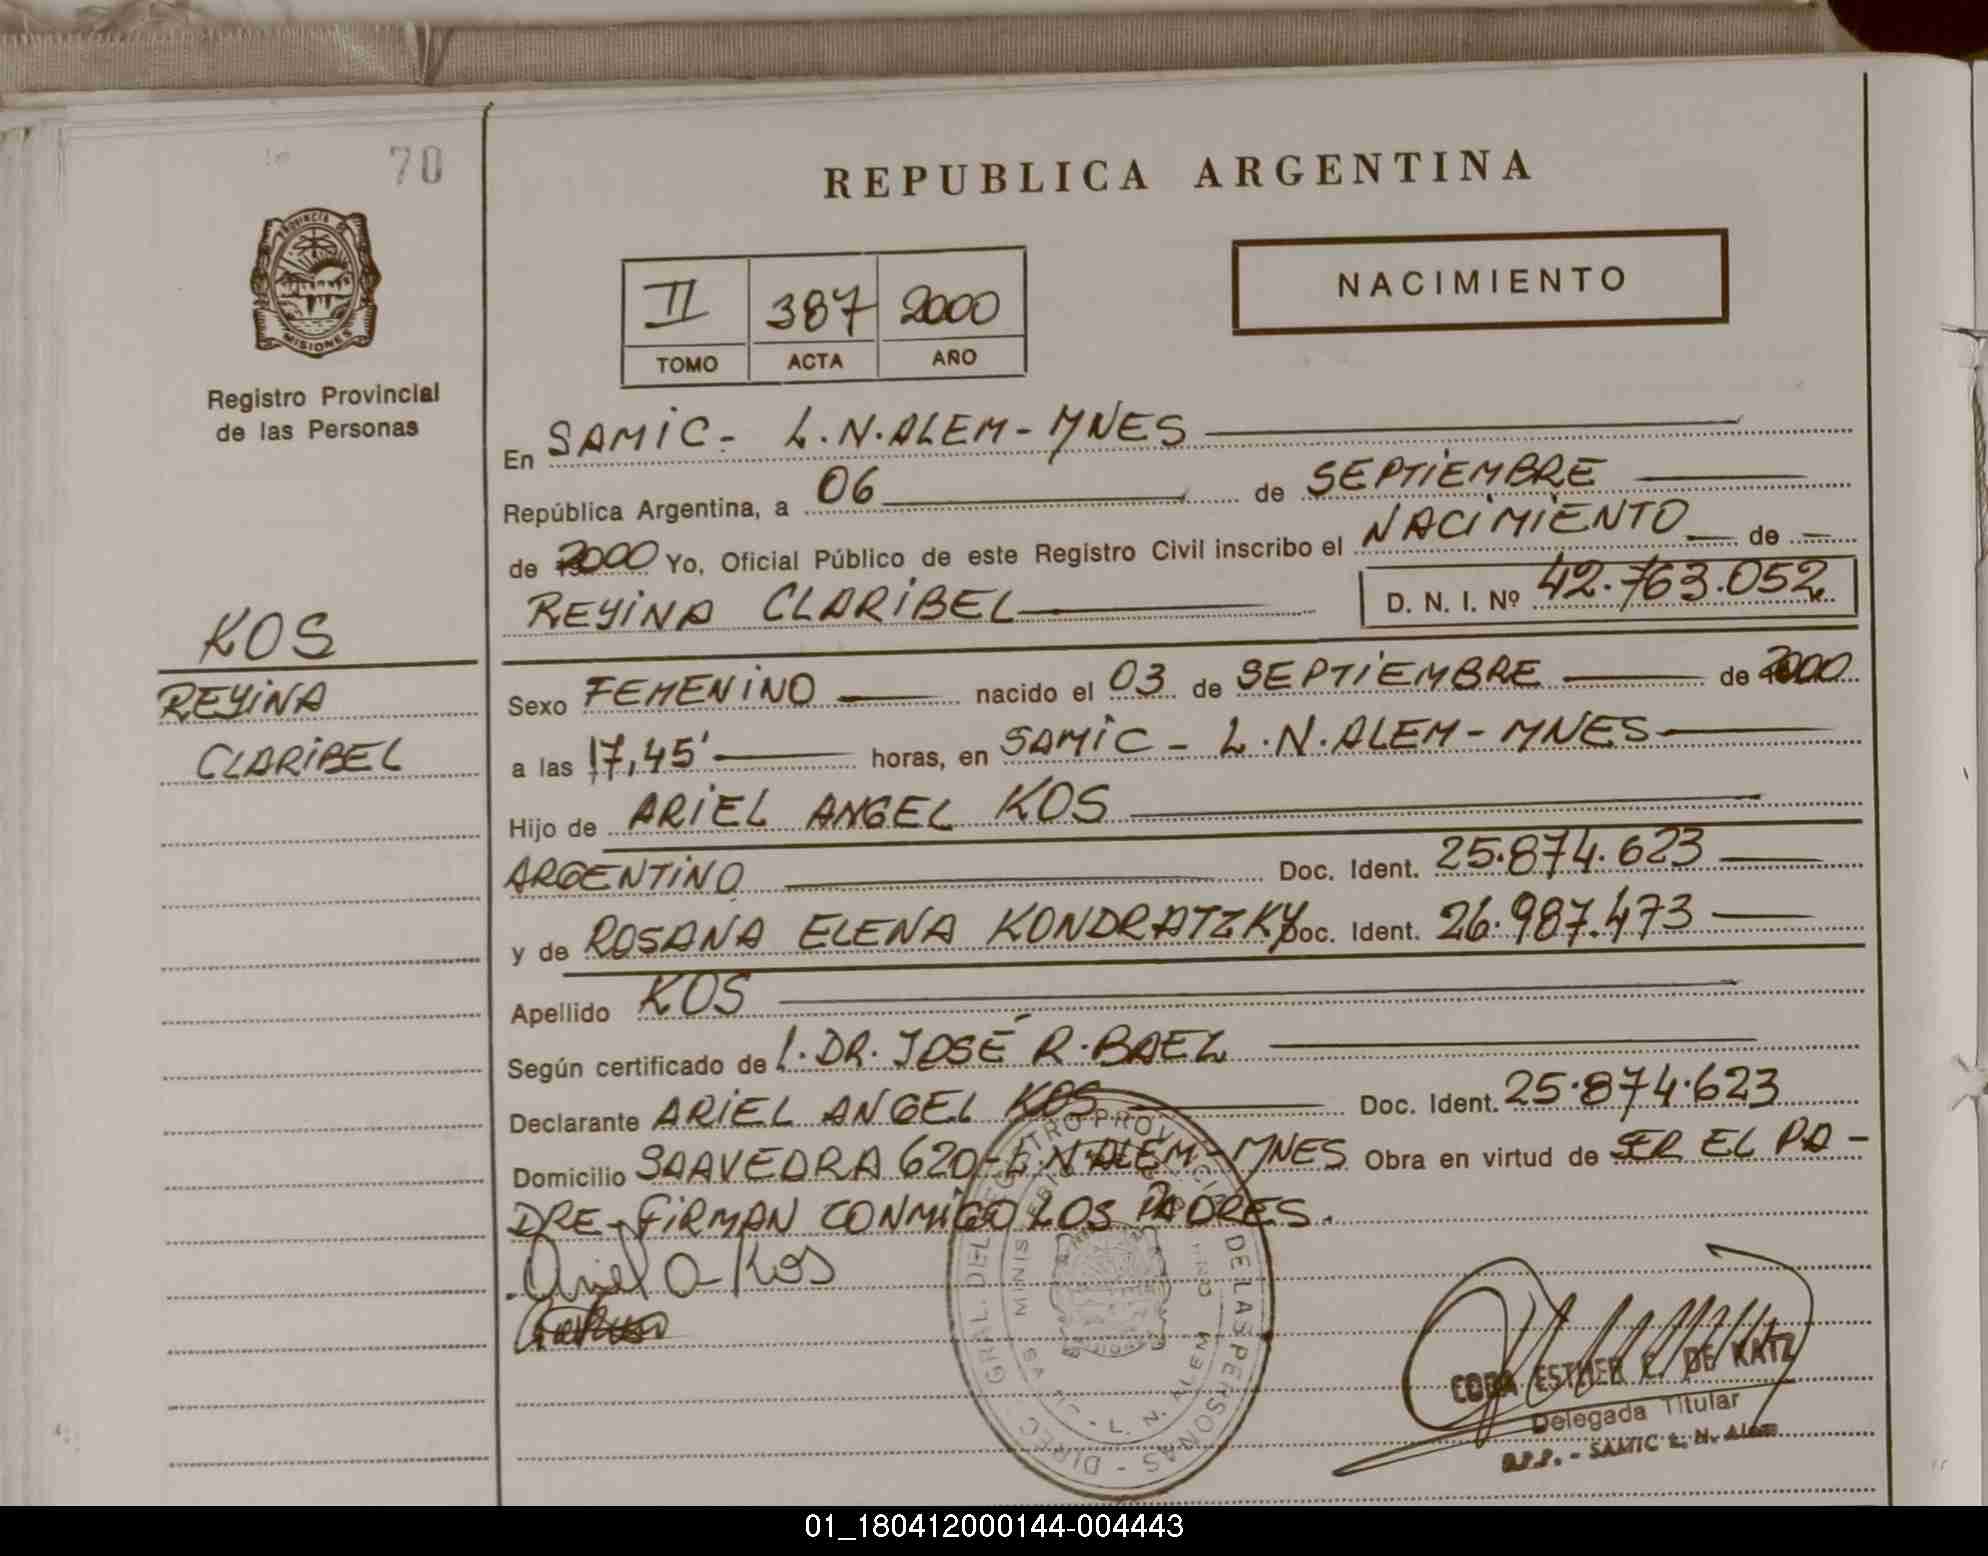 70
REPUBLICA ARGENTINA
PROVINCIA DE
MISIONES
Registro Provincial
de las Personas
NACIMIENTO
II 387 2000
TOMO ACTA AÑO
En SAMIC - L.N.ALEM - MNES
República Argentina, a 06 de SEPTIEMBRE
de 2000 Yo, Oficial Público de este Registro Civil inscribo el NACIMIENTO de
REYINA CLARIBEL D. N. I. Nº 42.763.052
KOS
REYINA
CLARIBEL
Sexo FEMENINO nacido el 03 de SEPTIEMBRE de 2000
a las 17,45' horas, en SAMIC - L.N.ALEM - MNES
Hijo de ARIEL ANGEL KOS
ARGENTINO Doc. Ident. 25.874.623
y de ROSANA ELENA KONDRATZKY Doc. Ident. 26.987.473
Apellido KOS
Según certificado de 1. DR. JOSÉ R. BAEZ
Declarante ARIEL ANGEL KOS Doc. Ident. 25.874.623
Domicilio SAAVEDRA 620 - L.N.ALEM - MNES Obra en virtud de SER EL PA-
DRE - FIRMAN CONMIGO LOS PADRES.
Ariel A Kos
DIREC. GRAL. DEL REGISTRO PROVINCIAL DE LAS PERSONAS
L. N. ALEM
ESTHER E. DE KATZ
Delegada Titular
SAMIC L. N. Alem
01_180412000144-004443